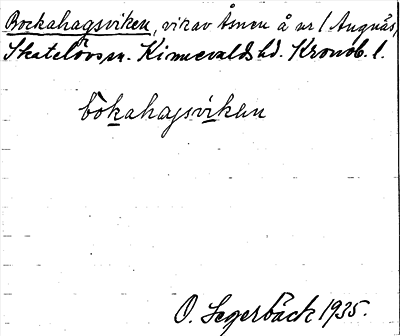 Bockahagsviken, vik av Åsnen å nr 1 Angnäs,
Skatelövs sn. Kinnevalds hd. Kronob. l.
bòkahagsviken
O. Segerbäck 1935.